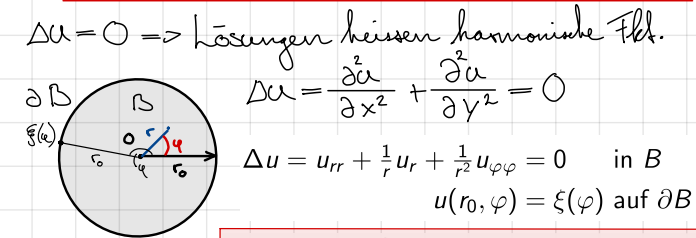 Δu = 0 => Lösungen heissen harmonische Fkt.
Δu = ∂²u/∂x² + ∂²u/∂y² = 0
∂B
B
ξ(φ)
0 r φ
r₀ φ r₀
Δu = u_rr + 1/r u_r + 1/r² u_φφ = 0 in B
u(r₀, φ) = ξ(φ) auf ∂B